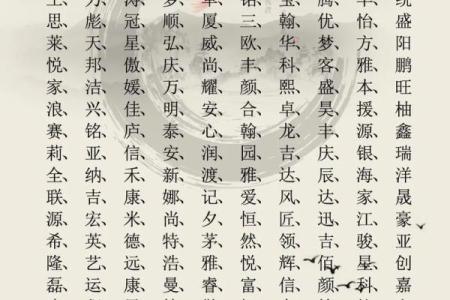 思、彪、冠、梦、厦、玺、翰、优、怡、盛
莱、天、星、弘、威、欧、华、梦、方、阳
悦、邦、傲、庆、尚、丰、科、客、雅、鹏
家、洁、媛、万、耀、颜、熙、盛、本、旺
浪、兴、佳、明、安、合、卓、昊、援、柚
赛、铭、庐、泰、心、翰、龙、丰、源、鑫
莉、亚、信、安、润、园、吉、庆、银、瑞
全、纳、禾、新、渡、雅、达、辰、海、洋
联、吉、康、娜、记、爱、风、达、家、晟
源、宏、米、尚、夕、恒、匠、迅、江、豪
希、英、德、特、茅、然、领、吉、骏、亚
隆、艺、远、浩、雅、悦、辉、佰、星、创
磊、运、康、曼、睿、富、信、颜、科、嘉